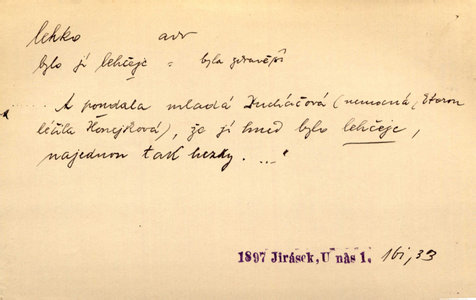 lehko adv
bylo jí lehčeji = byla zdravější
A povídala mladá Ducháčová (nemocná, kterou
léčila Konejlková), že jí hned bylo lehčeji,
najednou tak hezky. ...
1897 Jirásek, U nás 1. 161, 33